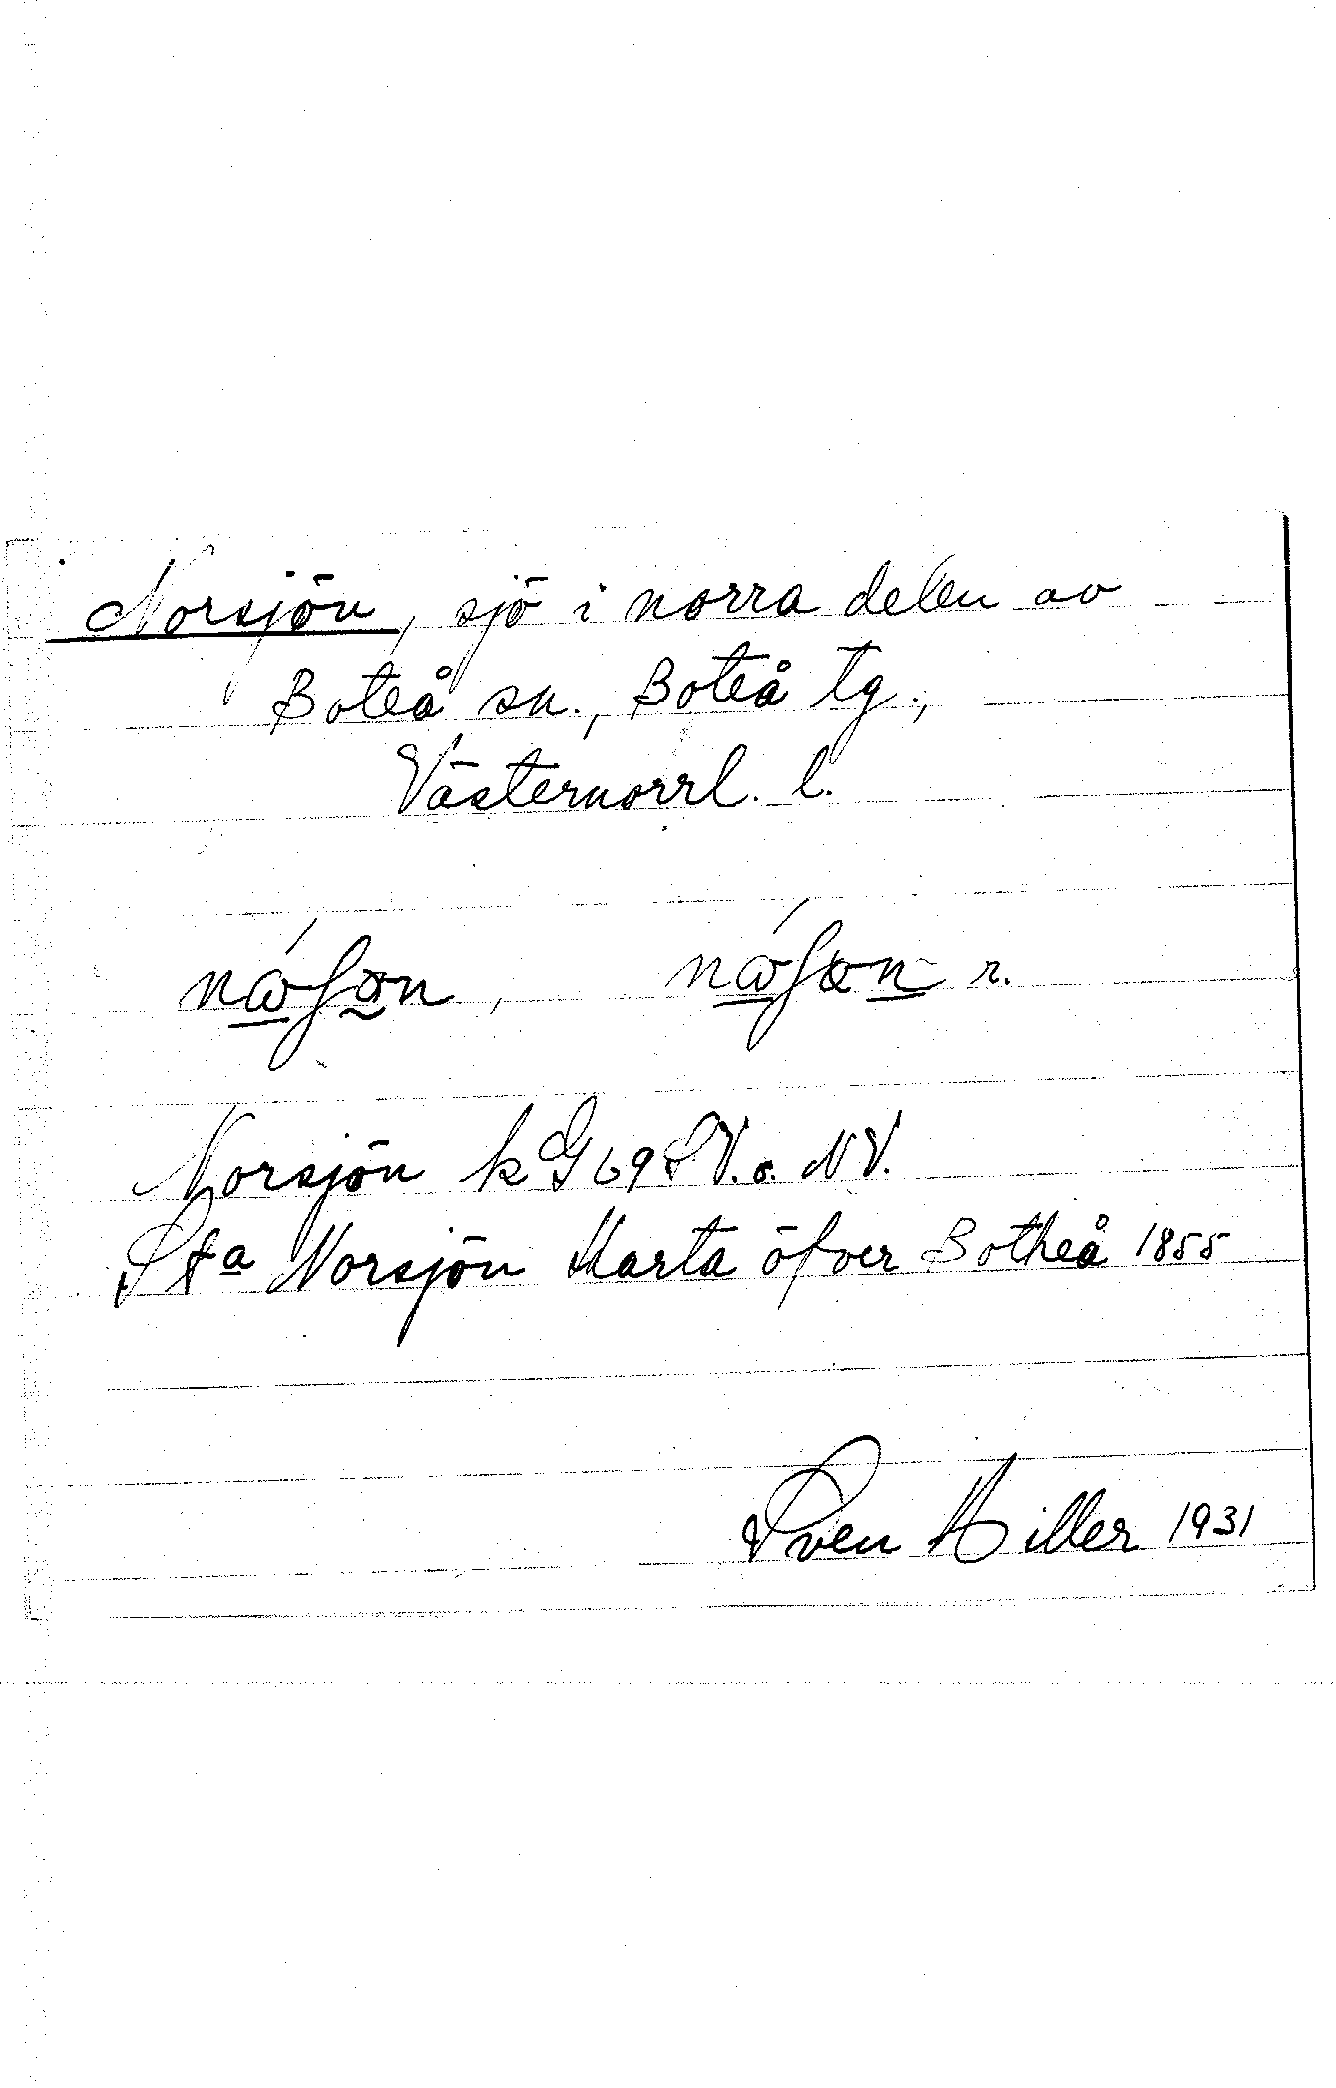 Norsjön, sjö i norra delen av
Boteå sn., Boteå tg.,
Västernorrl. l.
r.
Norsjön k G 69 SV. o. NV.
Sta Norsjön Karta öfver Botheå 1855
Sven Hiller 1931